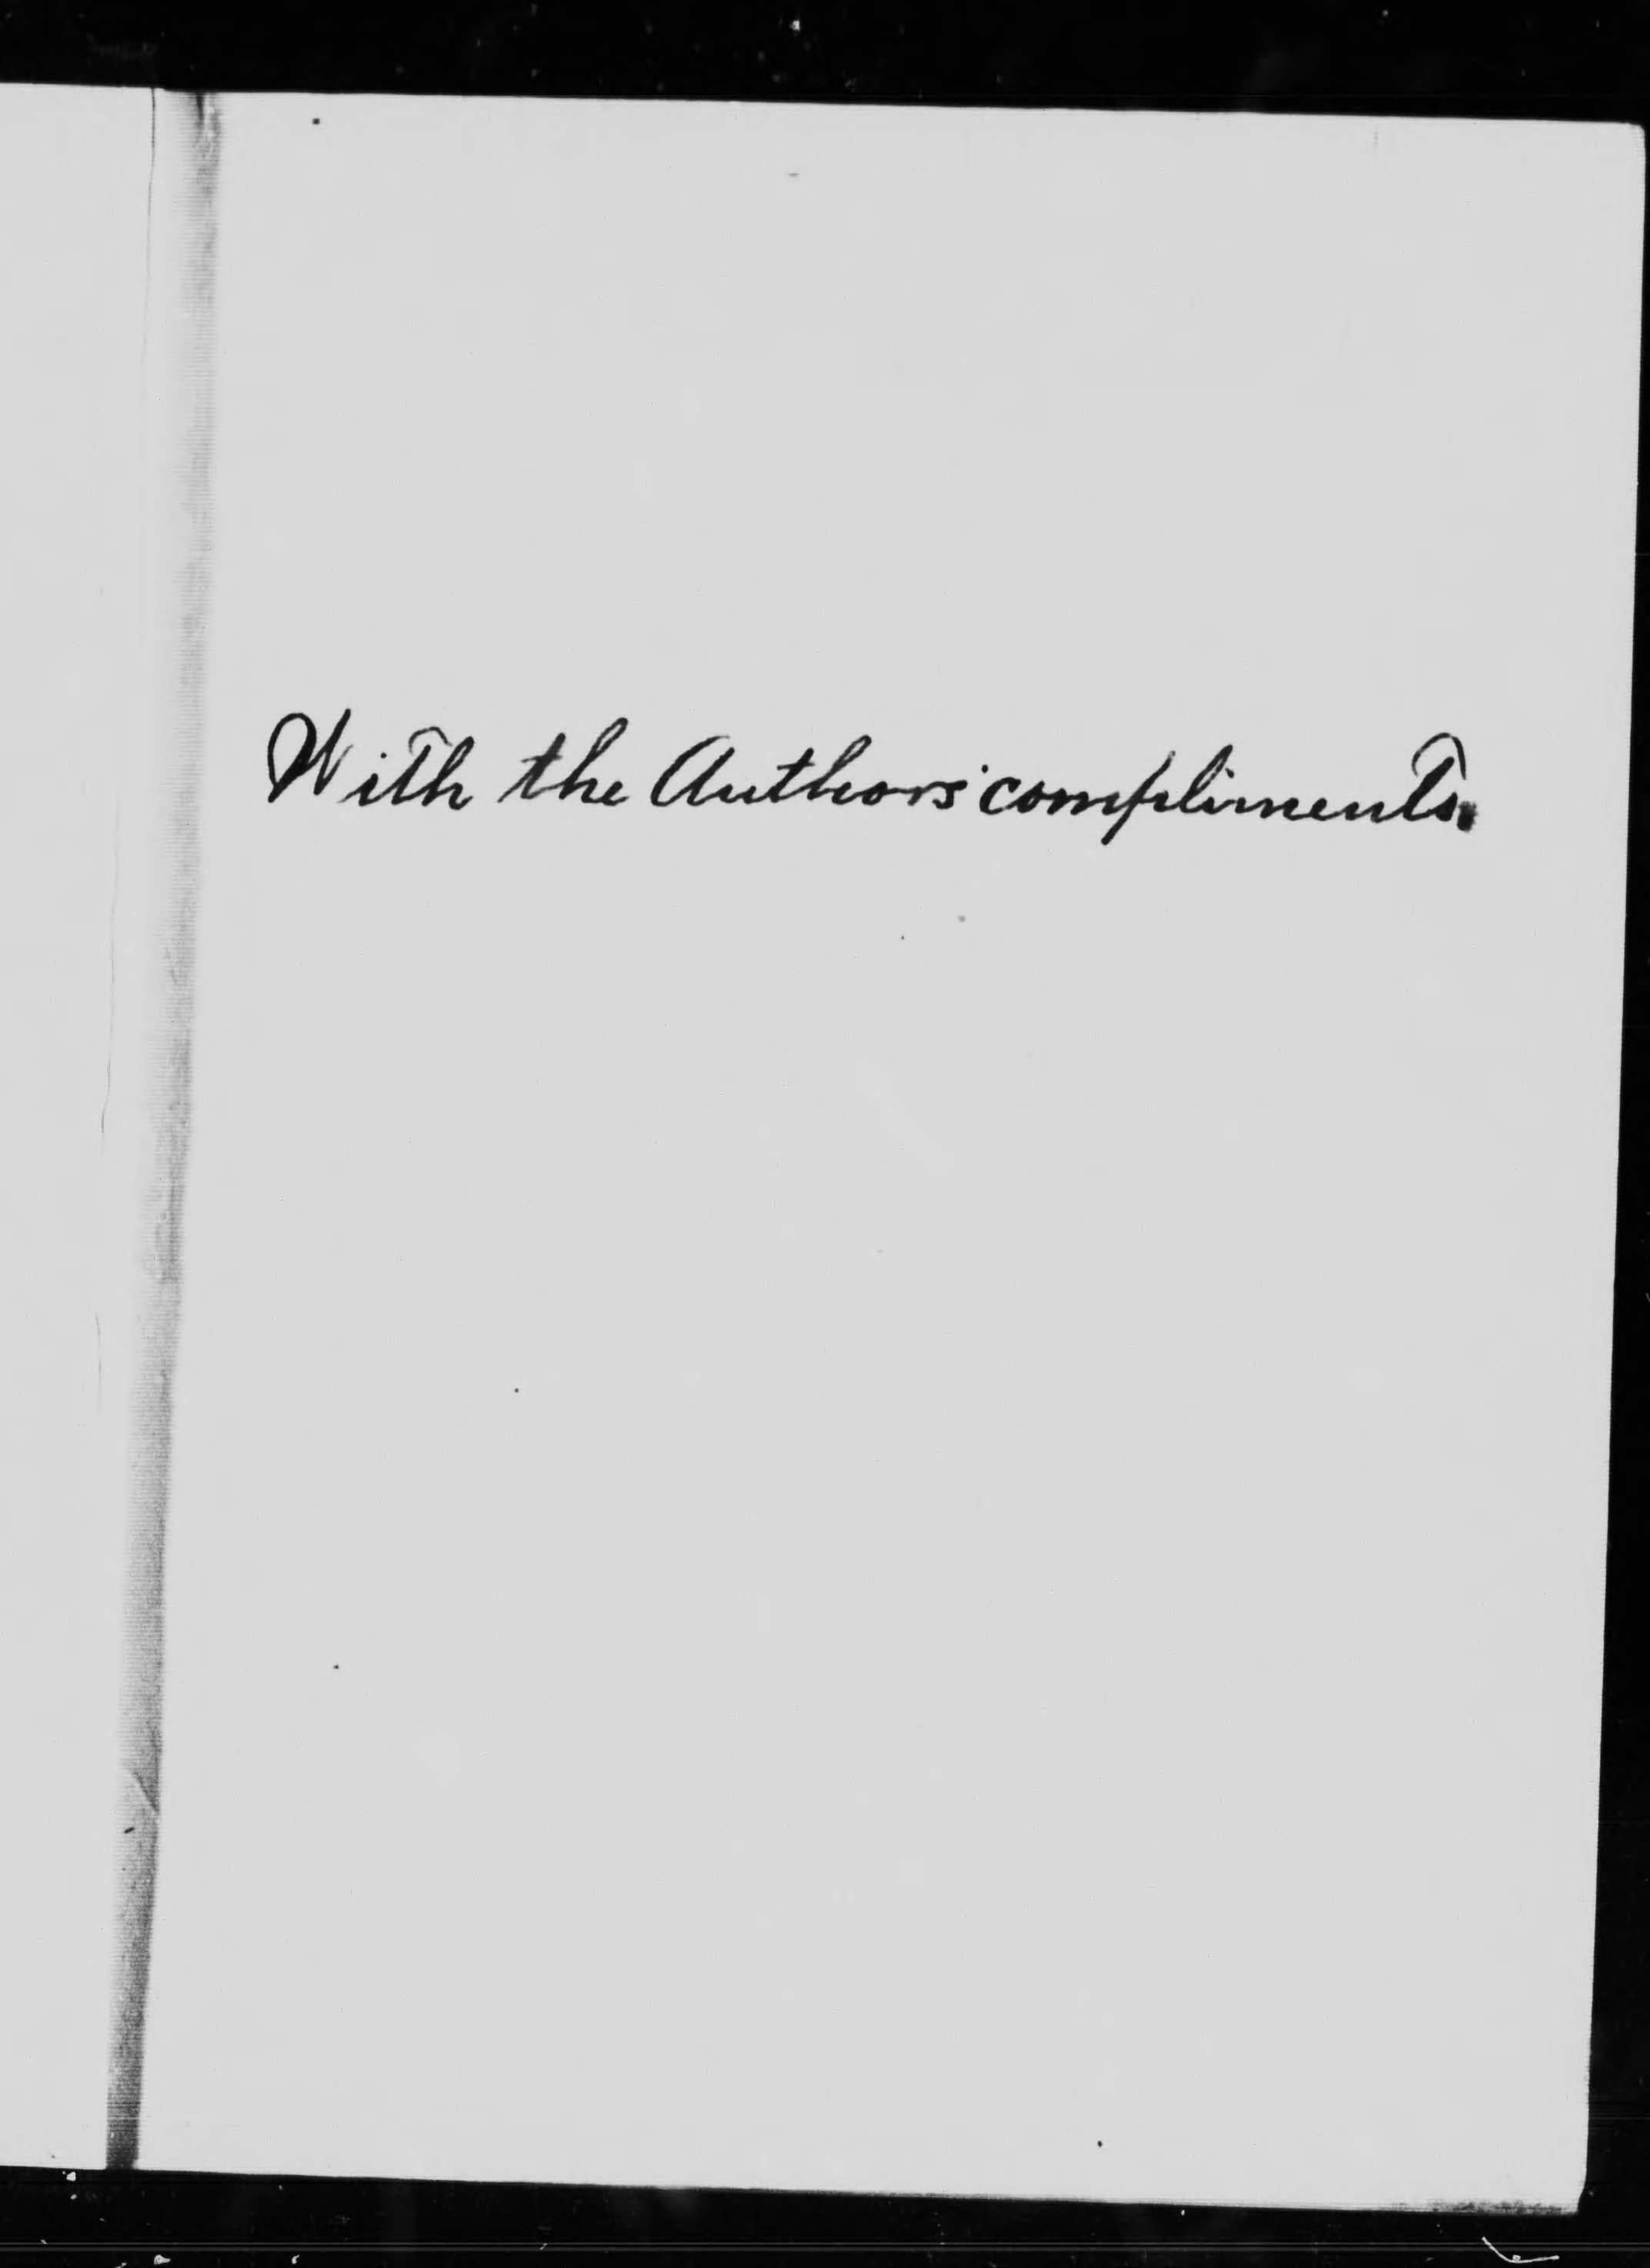 With the Authors' compliments.